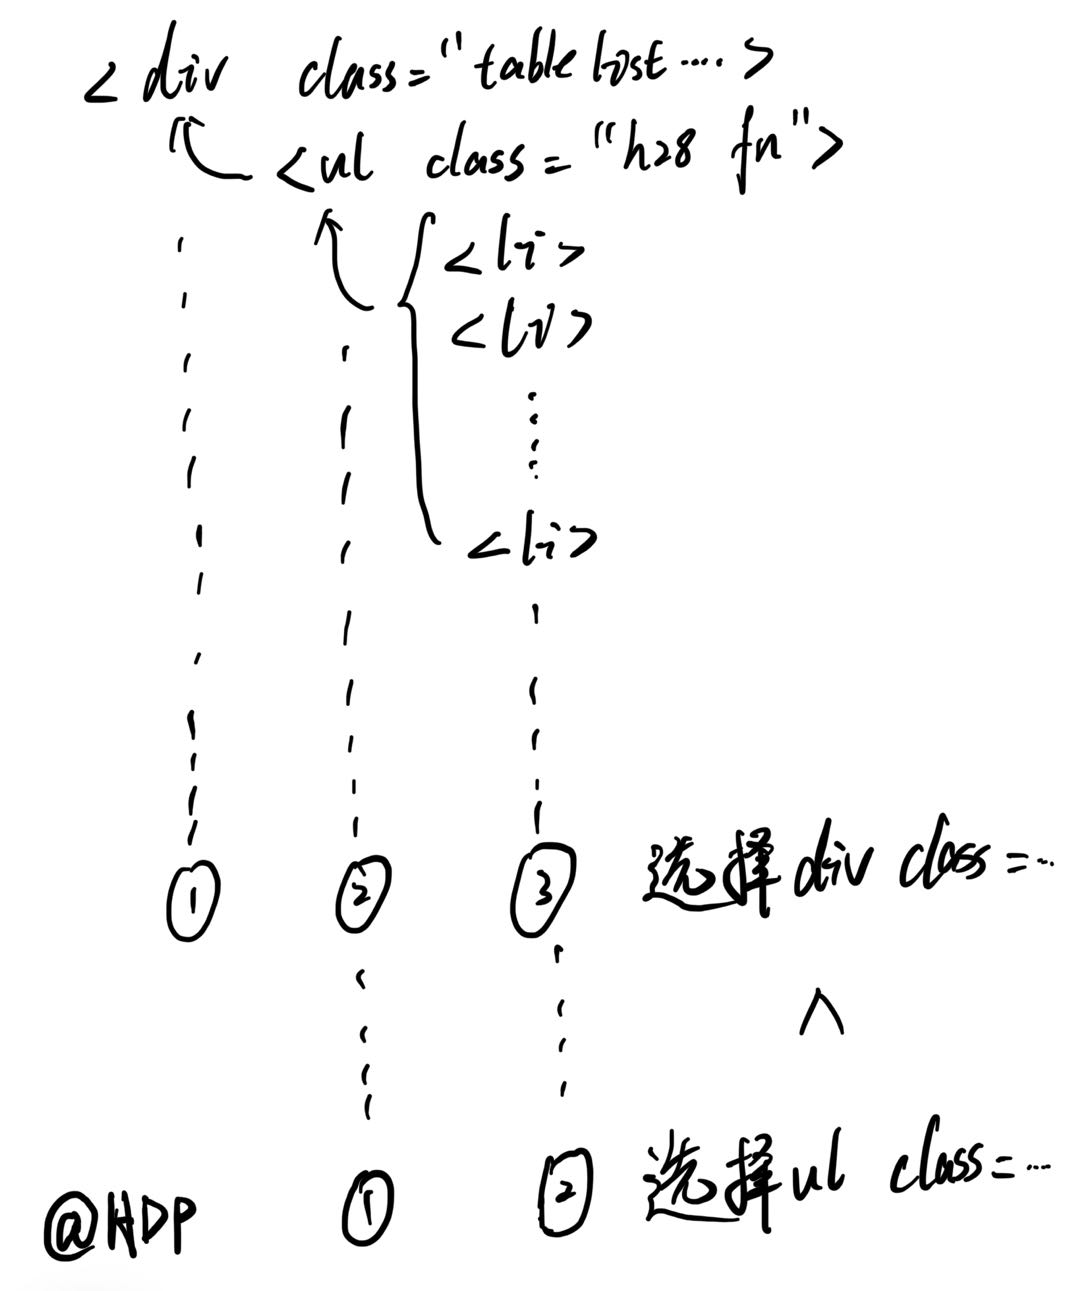 <div class="table list ....>
<ul class="h28 fn">
<li>
<li>
<li>
① ② ③ 选择div class=...
① ② 选择ul class=...
@HDP